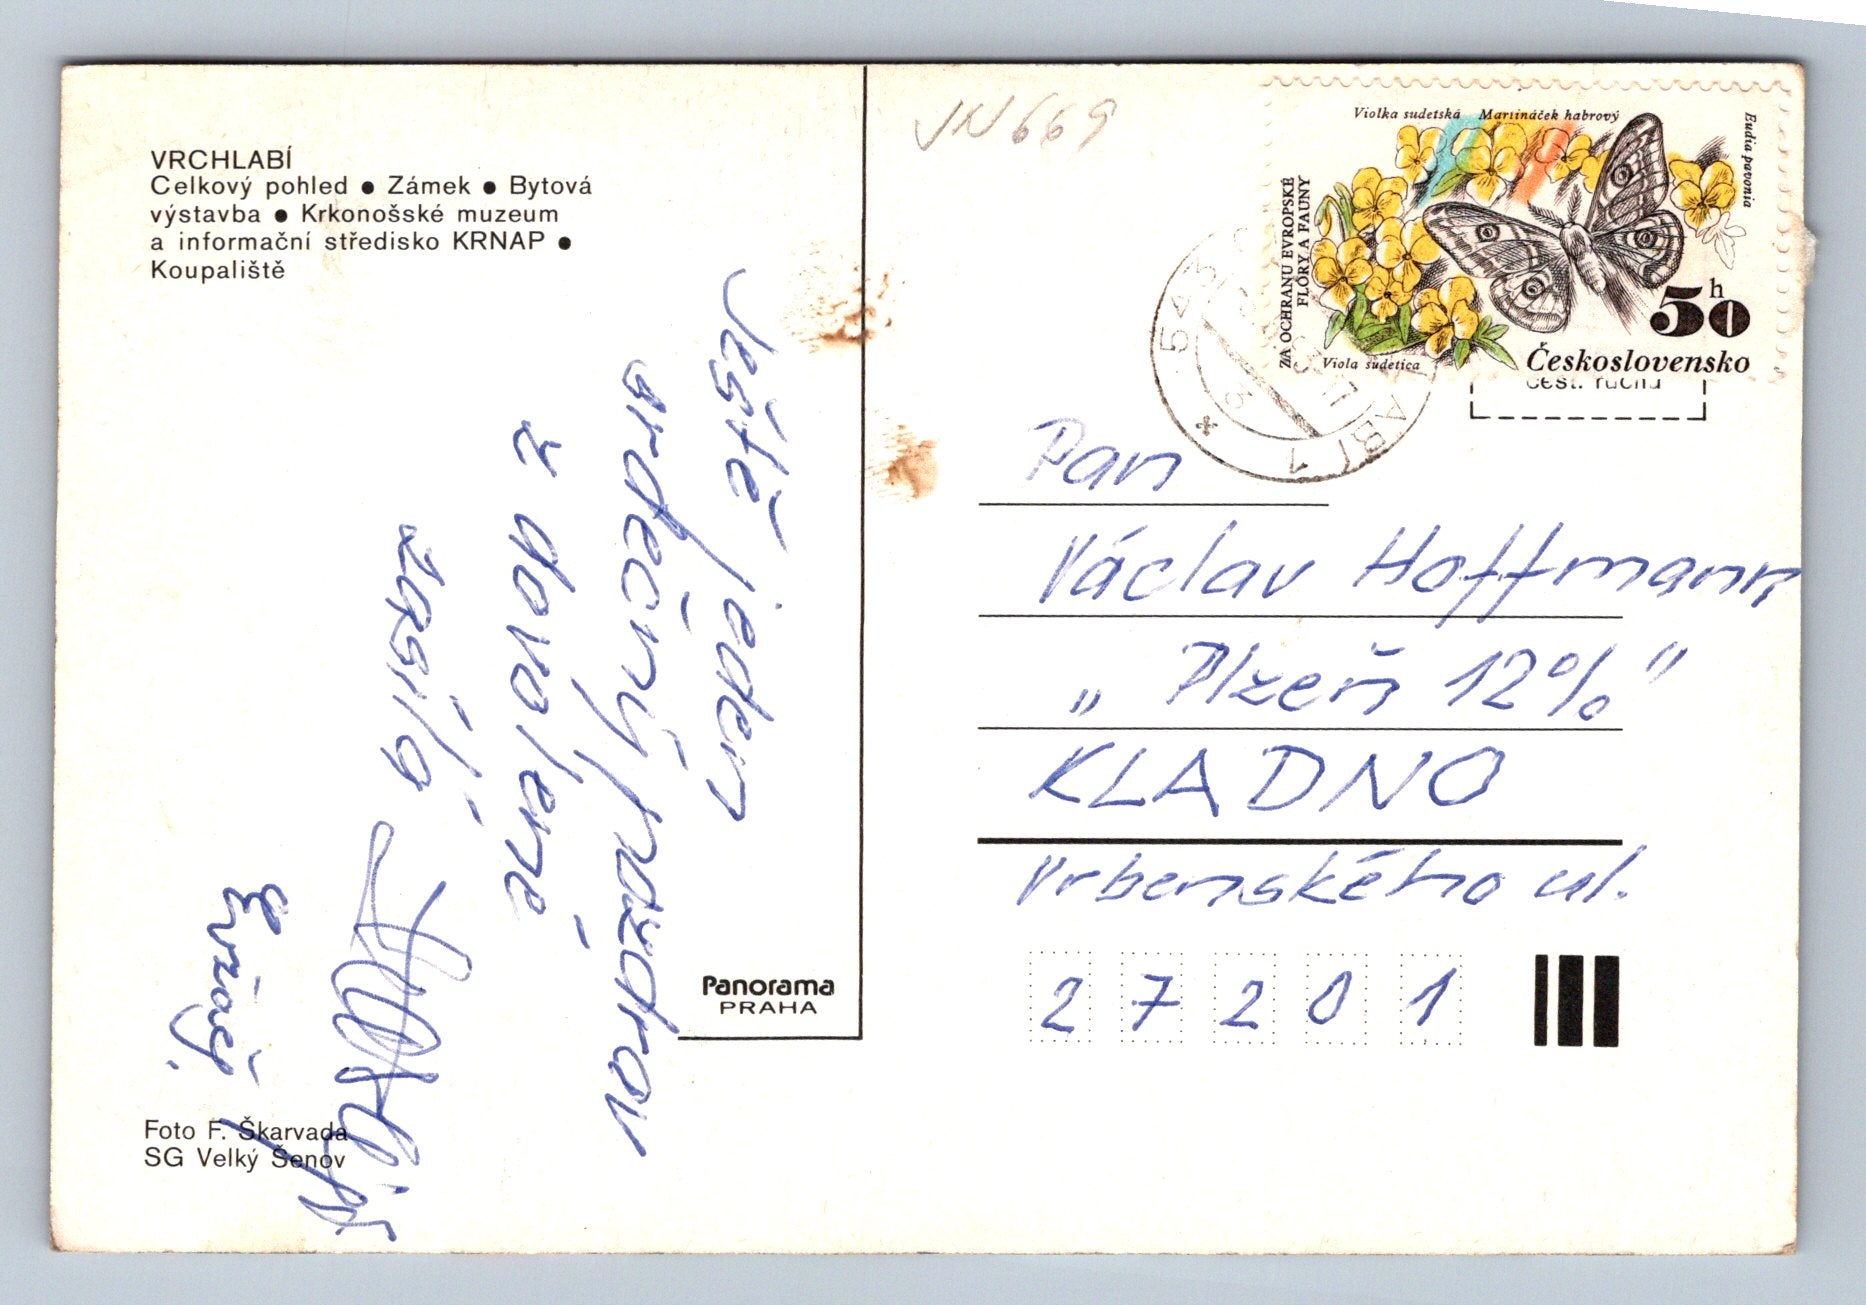 VRCHLABÍ
Celkový pohled ● Zámek ● Bytová
výstavba ● Krkonošské muzeum
a informační středisko KRNAP ●
Koupaliště
Ještě jeden
srdečný pozdrav
z dovolené
zasílá
Foto F. Škarvada
SG Velký Šenov
Panorama
PRAHA
VN 669
Violka sudetská Martináček habrový
Eudia pavonia
ZA OCHRANU EVROPSKÉ
FLÓRY A FAUNY
50 h
Viola sudetica
Československo
543
1
Pan
Václav Hoffmann
„Plzeň 12%"
KLADNO
Vrbenského ul.
2 7 2 0 1